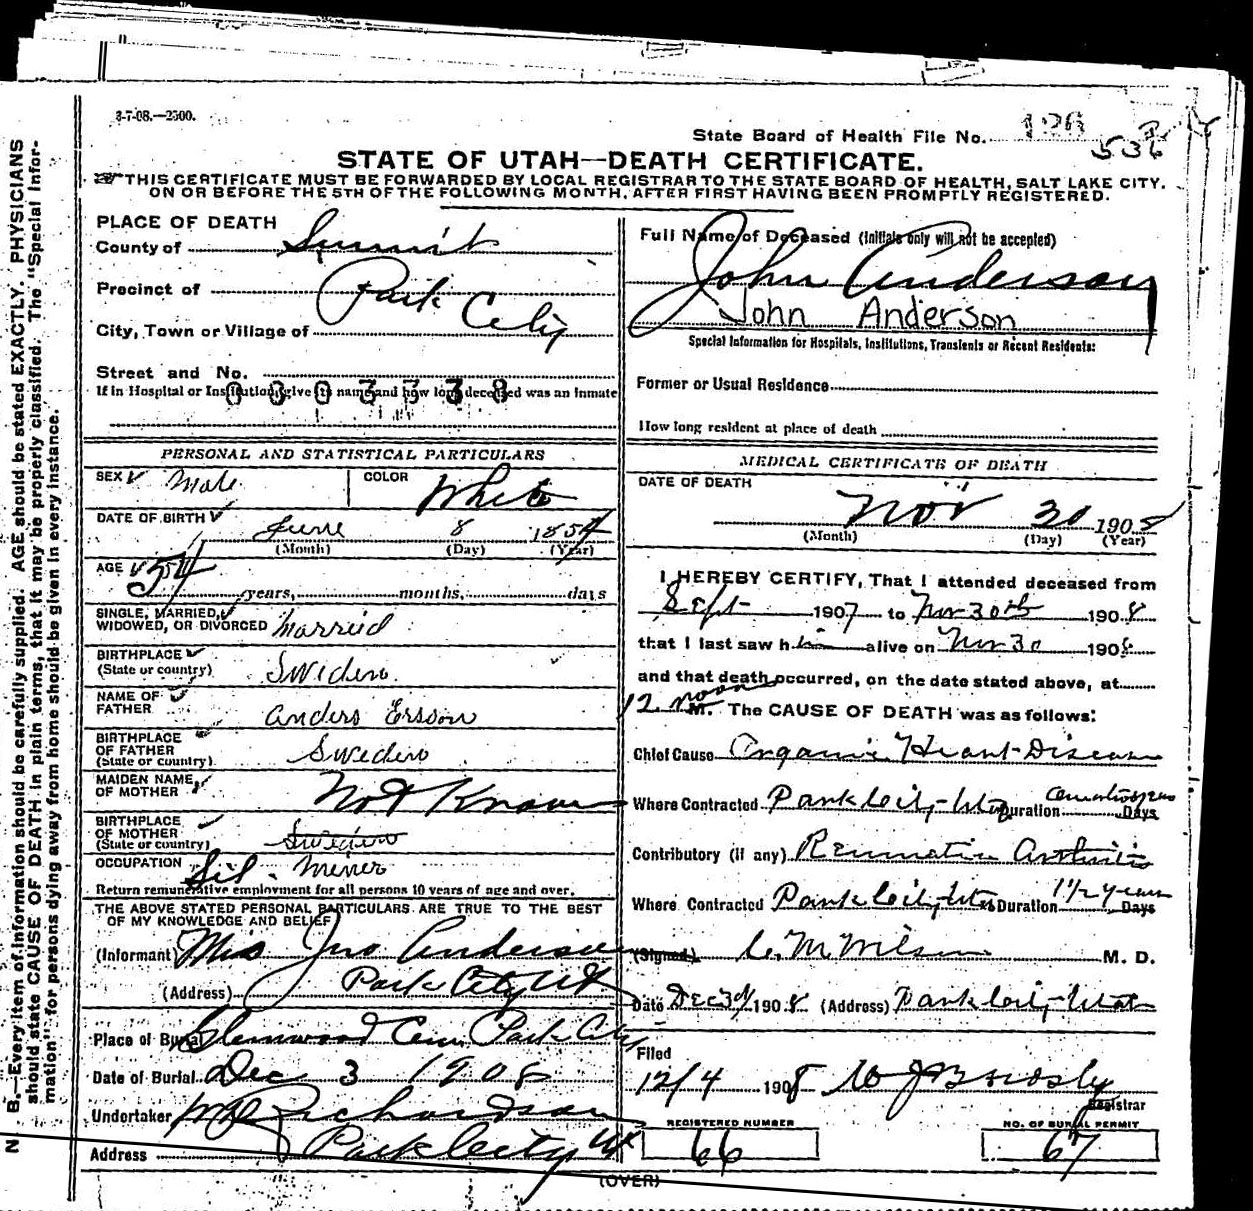 3-7-08.—2500.
State Board of Health File No. 126
536
STATE OF UTAH—DEATH CERTIFICATE.
THIS CERTIFICATE MUST BE FORWARDED BY LOCAL REGISTRAR TO THE STATE BOARD OF HEALTH, SALT LAKE CITY,
ON OR BEFORE THE 5TH OF THE FOLLOWING MONTH, AFTER FIRST HAVING BEEN PROMPTLY REGISTERED.
PLACE OF DEATH
County of Summit
Precinct of Park City
City, Town or Village of
Street and No.
If in Hospital or Institution, give its name and how long deceased was an inmate
0303338
PERSONAL AND STATISTICAL PARTICULARS
SEX Male COLOR White
DATE OF BIRTH June 8 1854
(Month) (Day) (Year)
AGE 54 years, months, days
SINGLE, MARRIED,
WIDOWED, OR DIVORCED Married
BIRTHPLACE
(State or country) Sweden
NAME OF
FATHER Anders Ersson
BIRTHPLACE
OF FATHER
(State or country) Sweden
MAIDEN NAME
OF MOTHER Not Known
BIRTHPLACE
OF MOTHER
(State or country) Sweden
OCCUPATION Sil. Miner
Return remunerative employment for all persons 10 years of age and over.
THE ABOVE STATED PERSONAL PARTICULARS ARE TRUE TO THE BEST
OF MY KNOWLEDGE AND BELIEF
(Informant) Mrs Jno Anderson
(Address) Park City Ut
Place of Burial Glenwood Cem. Park City
Date of Burial Dec 3 1908
Undertaker Richardson
Address Park City Ut
Full Name of Deceased (Initials only will not be accepted)
John Anderson
John Anderson
Special Information for Hospitals, Institutions, Transients or Recent Residents:
Former or Usual Residence
How long resident at place of death
MEDICAL CERTIFICATE OF DEATH
DATE OF DEATH
Nov 30 1908
(Month) (Day) (Year)
I HEREBY CERTIFY, That I attended deceased from
Sept 1907 to Nov 30th 1908
that I last saw him alive on Nov 30 1908
and that death occurred, on the date stated above, at
12 noon M. The CAUSE OF DEATH was as follows:
Chief Cause Organic Heart Disease
Where Contracted Park City, Utah Duration Days
Contributory (if any) Rheumatic Arthritis
Where Contracted Park City, Utah Duration 1 1/2 years Days
(Signed) C. M. Wilson M. D.
Date Dec 3d 1908 (Address) Park City, Utah
Filed
12/4 1908
Registrar
REGISTERED NUMBER
66
NO. OF BURIAL PERMIT
67
(OVER)
N. B.—Every item of information should be carefully supplied. AGE should be stated EXACTLY. PHYSICIANS
should state CAUSE OF DEATH in plain terms, that it may be properly classified. The "Special Infor-
mation" for persons dying away from home should be given in every instance.